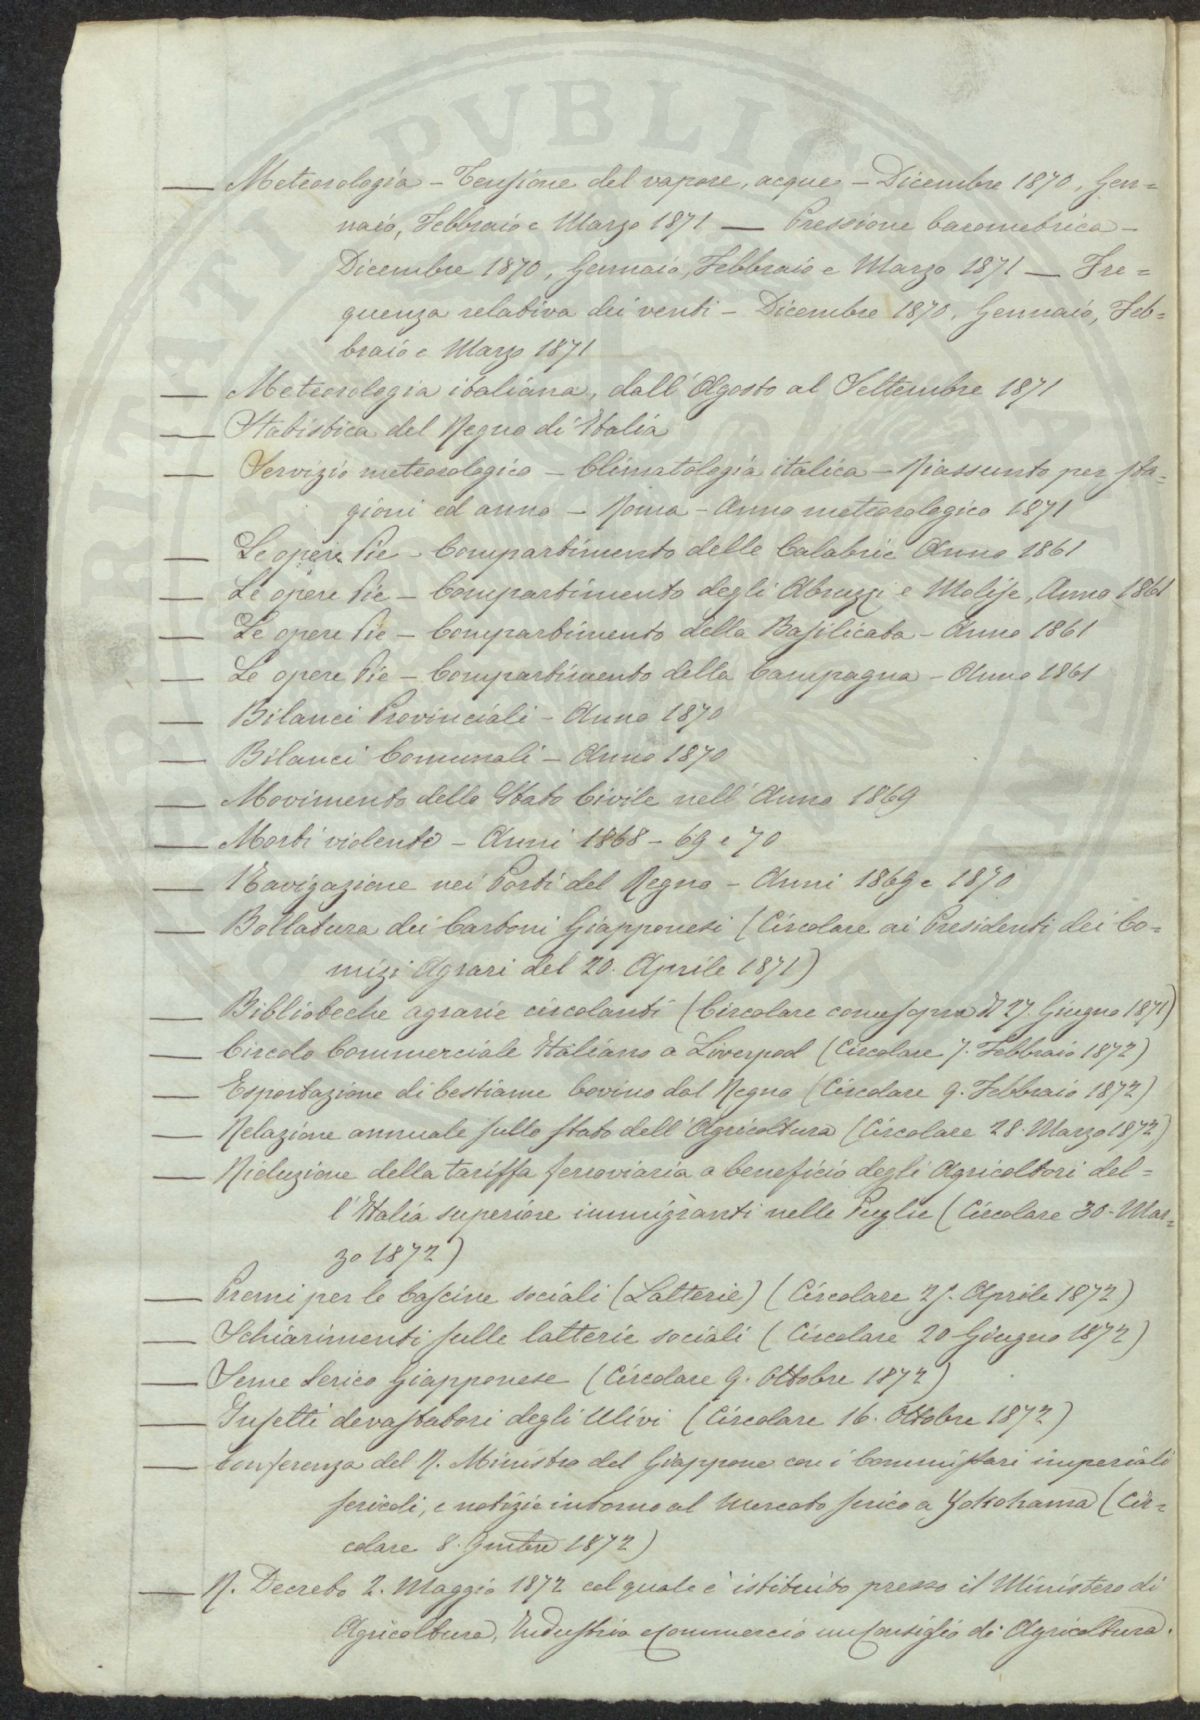 — Meteorologia – Tensione del vapore, acque – Dicembre 1870, Gen=
naio, Febbraio e Marzo 1871 — Pressione barometrica –
Dicembre 1870, Gennaio, Febbraio e Marzo 1871 — Fre=
quenza relativa dei venti – Dicembre 1870, Gennaio, Feb=
braio e Marzo 1871
— Meteorologia italiana, dall'Agosto al Settembre 1871
— Statistica del Regno di Italia
— Servizio meteorologico – Climatologia italica – Riassunto per sta=
gioni ed anno – Roma – Anno meteorologico 1871
— Le opere Pie – Compartimento delle Calabrie Anno 1861
— Le opere Pie – Compartimento degli Abruzzi e Molise, Anno 1861
— Le opere Pie – Compartimento della Basilicata – Anno 1861
— Le opere Pie – Compartimento della Campagna – Anno 1861
— Bilanci Provinciali – Anno 1870
— Bilanci Comunali – Anno 1870
— Movimento dello Stato Civile nell'Anno 1869
— Morti violente – Anni 1868 – 69 e 70
— Navigazione nei Porti del Regno – Anni 1869 e 1870
— Bollatura dei Cartoni Giapponesi (Circolare ai Presidenti dei Co=
mizi Agrari del 20. Aprile 1871)
— Biblioteche agrarie circolanti (Circolare come sopra 27. Giugno 1871)
— Circolo Commerciale Italiano a Liverpool (Circolare 7. Febbraio 1872)
— Esportazione di bestiame bovino dal Regno (Circolare 9. Febbraio 1872)
— Relazione annuale sullo stato dell'Agricoltura (Circolare 28. Marzo 1872)
— Riduzione della tariffa ferroviaria a beneficio degli Agricoltori del=
l'Italia superiore immigranti nelle Puglie (Circolare 30. Mar=
zo 1872)
— Premi per le Cascine sociali (Latterie) (Circolare Aprile 1872)
— Schiarimenti sulle latterie sociali (Circolare 20 Giugno 1872)
— Seme Serico Giapponese (Circolare 9. Ottobre 1872)
— Insetti devastatori degli Ulivi (Circolare 16. Ottobre 1872)
— Conferenza del R. Ministro del Giappone con i Commissari imperiali
sericoli, e notizie intorno al mercato serico a Yokohama (Cir=
colare 8. 1872)
— R. Decreto 2. Maggio 1872 col quale è istituito presso il Ministero di
Agricoltura, Industria e Commercio un Consiglio di Agricoltura.